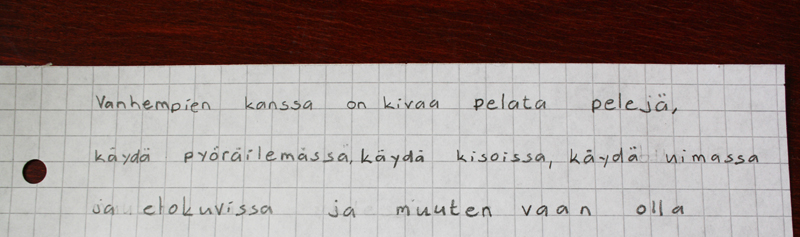 Vanhempien kanssa on kivaa pelata pelejä,
käydä pyöräilemässä, käydä kisoissa, käydä uimassa
ja elokuvissa ja muuten vaan olla